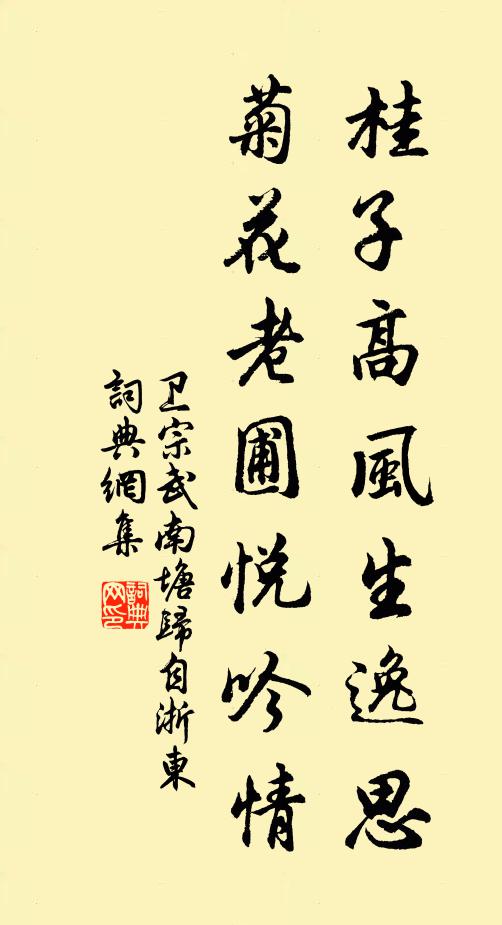 桂子高風生逸思
菊花老圃悦吟情
卫宗武南塘歸自浙東
詞典網集
詞典
网印